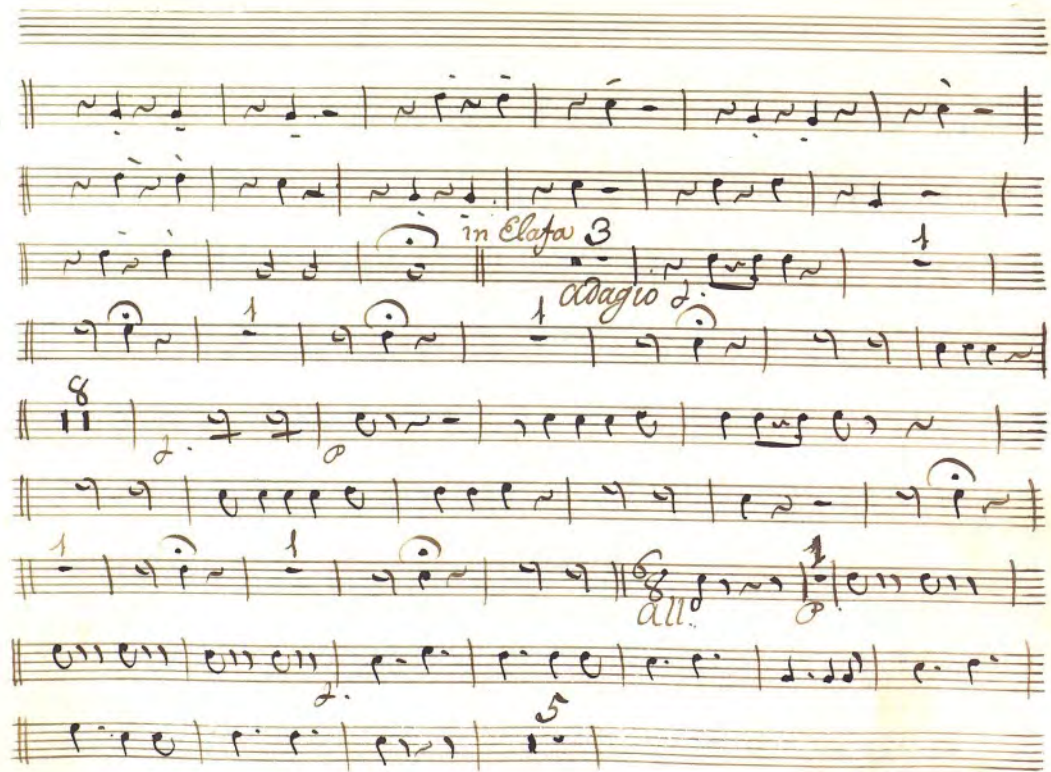 in Elafa 3 1
adagio f.
1 1
8
f. P
1 1 6/8 1
all:º P
f.
5